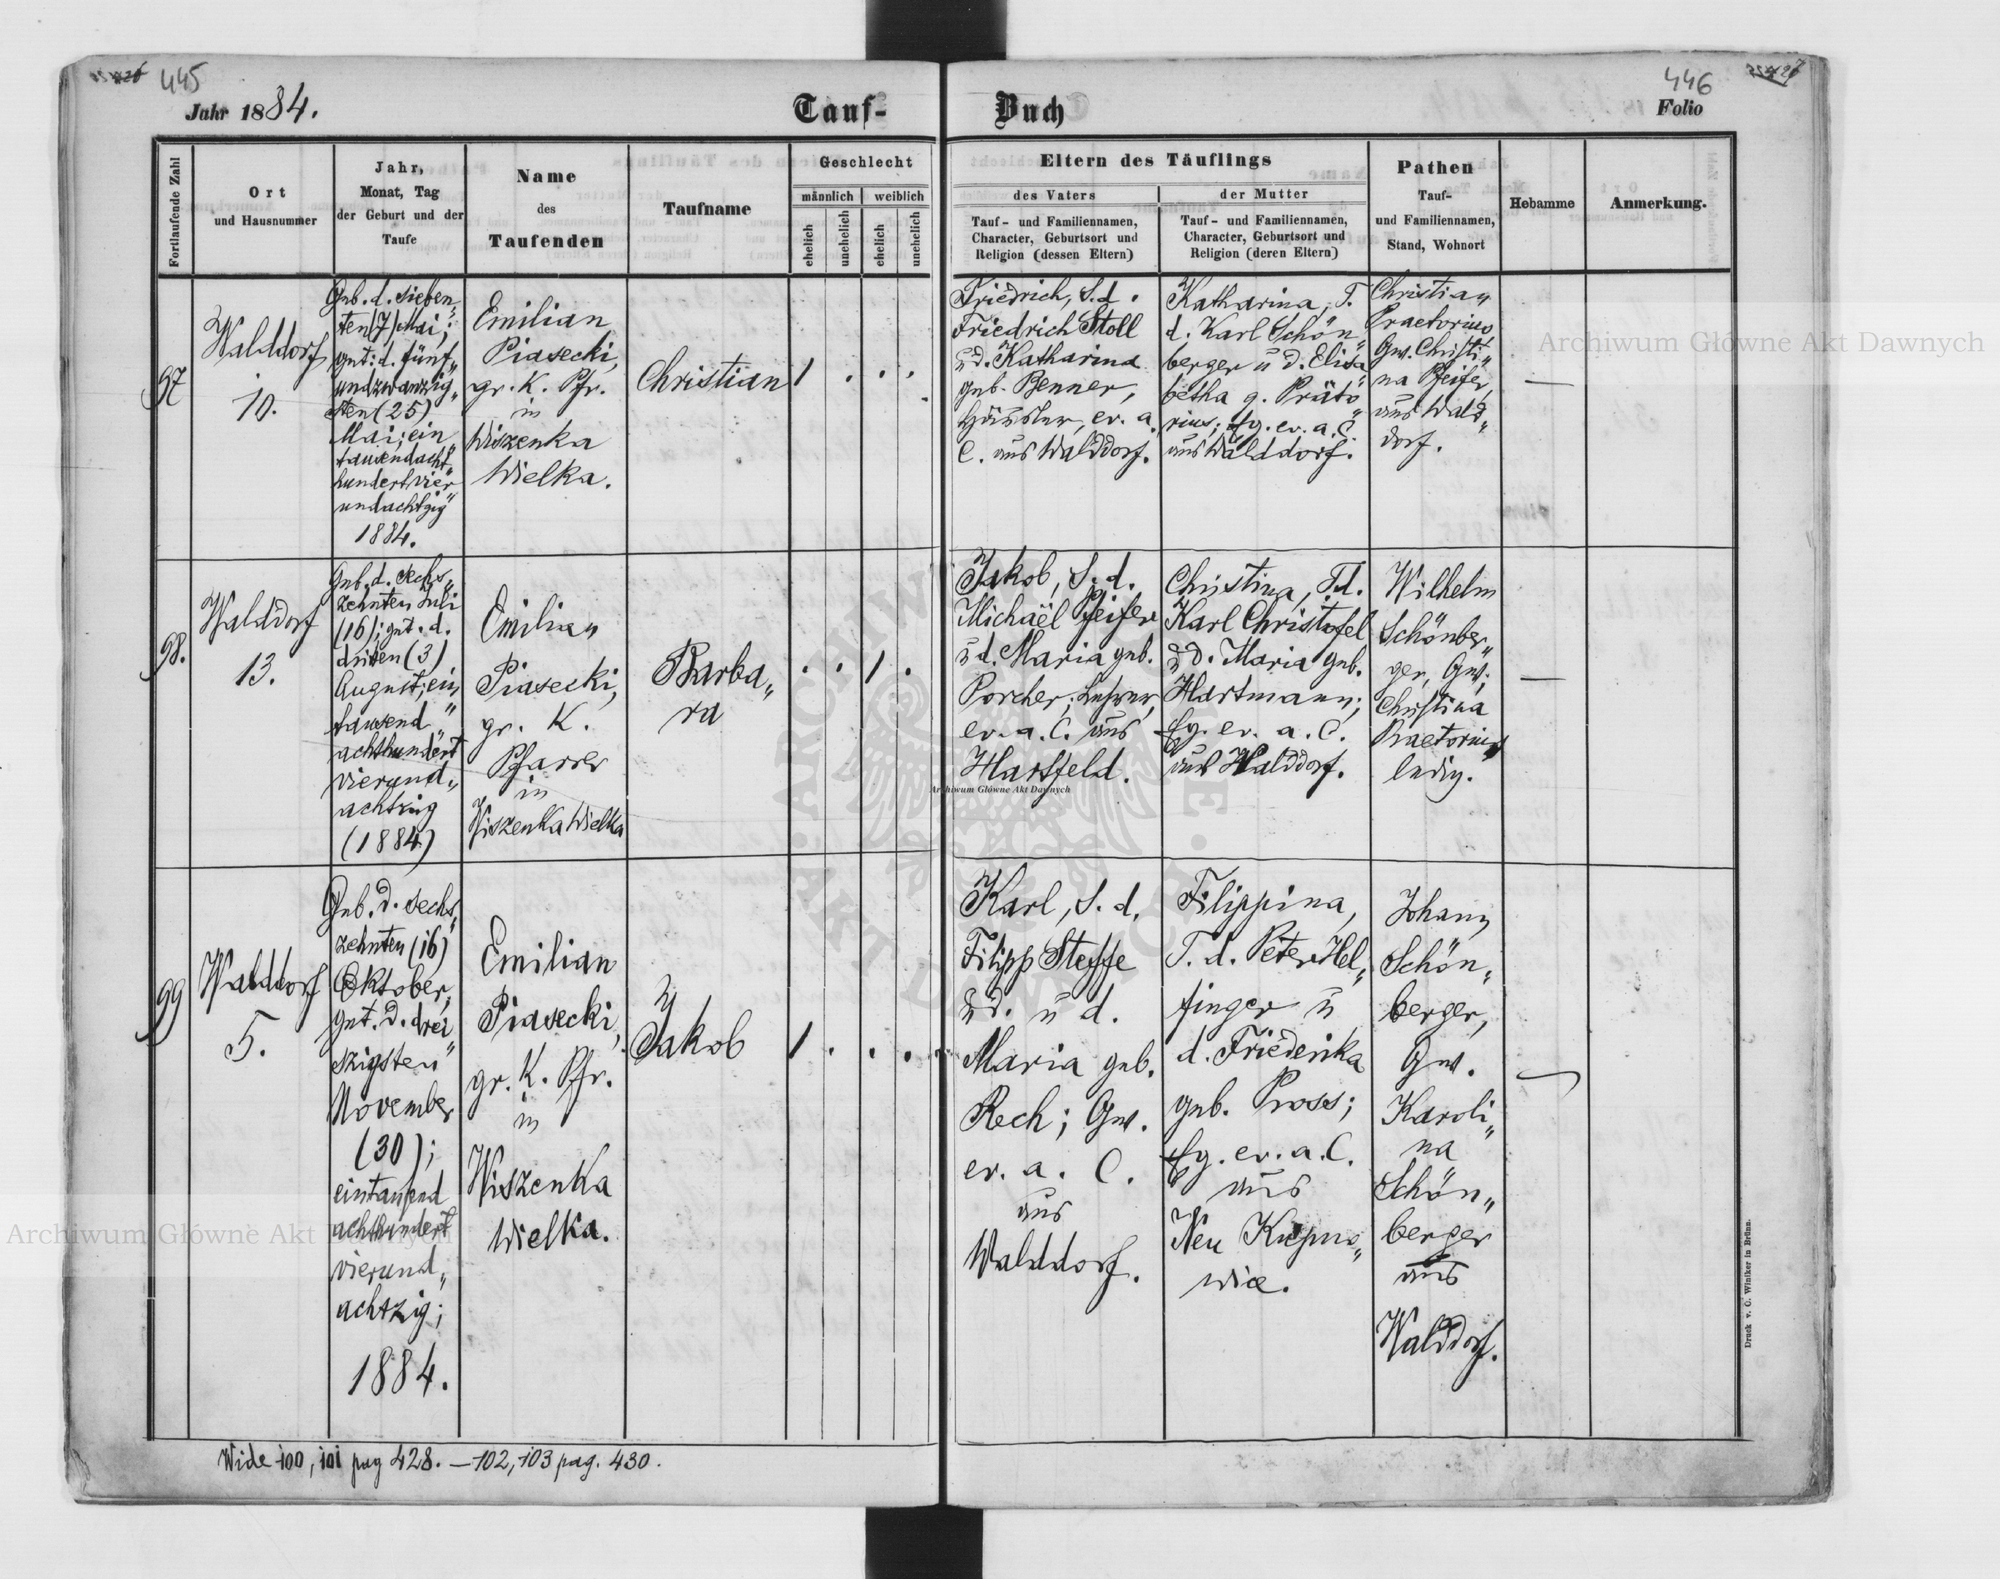 445
446
Jahr 1884.
Tauf-
Buch
Folio
Fortlaufende Zahl
Ort
und Hausnummer
Jahr,
Monat, Tag
der Geburt und der
Taufe
Name
des
Taufenden
Taufname
Geschlecht
männlich
weiblich
ehelich
unehelich
ehelich
unehelich
Eltern des Täuflings
des Vaters
Tauf- und Familiennamen,
Character, Geburtsort und
Religion (dessen Eltern)
der Mutter
Tauf- und Familiennamen,
Character, Geburtsort und
Religion (deren Eltern)
Pathen
Tauf-
und Familiennamen,
Stand, Wohnort
Hebamme
Anmerkung.
97
Walddorf
10.
Geb. d. sieben„
ten (7) Mai;
get: d. fünf„
undzwanzig„
sten (25)
Mai; ein„
tausendacht„
hundertvier„
undachtzig
1884.
Emilian
Piasecki,
gr. K. Pfr.
in
Wiszenka
Wielka.
Christian
1 . . .
Friedrich, S. d.
Friedrich Stoll
u d. Katharina
geb. Benner,
Häusler, ev. a.
C. aus Walddorf.
Katharina, T.
d. Karl Schön„
berger u d. Elisa„
betha g. Präto„
rius; Eg. ev. a. C.
aus Walddorf.
Christian
Praetorius
Gw. Christi„
na Pfeifer,
aus Wald„
dorf.
—
98.
Walddorf
13.
Geb. d. sechs„
zehnten Juli
(16); get. d.
dritten (3)
August; ein„
tausend„
achthundert
vierund„
achtzig
(1884)
Emilian
Piasecki,
gr. K.
Pfarrer
in
Wiszenka Wielka
Barba„
ra
. . 1 .
Jakob, S. d.
Michaël Pfeifer
u d. Maria geb.
Porcher; Lehrer,
ev. a. C. aus
Hartfeld.
Christina, T. d.
Karl Christofel
u d. Maria geb.
Hartmann;
Eg. ev. a. C.
aus Walddorf.
Wilhelm
Schönber„
ger, Gw;
Christina
Praetorius
ledig.
—
99
Walddorf
5.
Geb. d. sechs„
zehnten (16)
Oktober,
get. d. drei„
szigsten
November
(30);
eintausend
achthundert
vierund„
achtzig;
1884.
Emilian
Piasecki,
gr. K. Pfr.
in
Wiszenka
Wielka.
Jakob
1 . . .
Karl, S. d.
Filipp Steffe
u d.
Maria geb.
Rech; Gw.
ev. a. C.
aus
Walddorf.
Filippina,
T. d. Peter Hel„
finger u
d. Friederika
geb. Pross;
Eg. ev. a. C.
aus
Neu Kupno„
wice.
Johann
Schön„
berger,
Gw.
Karoli„
na
Schön„
berger
aus
Walddorf.
—
Wide 100, 101 pag 428. — 102, 103 pag. 430.
Druck v. C. Winiker in Brünn.
Archiwum Główne Akt Dawnych
Archiwum Główne Akt Dawnych
Archiwum Główne Akt Dawnych